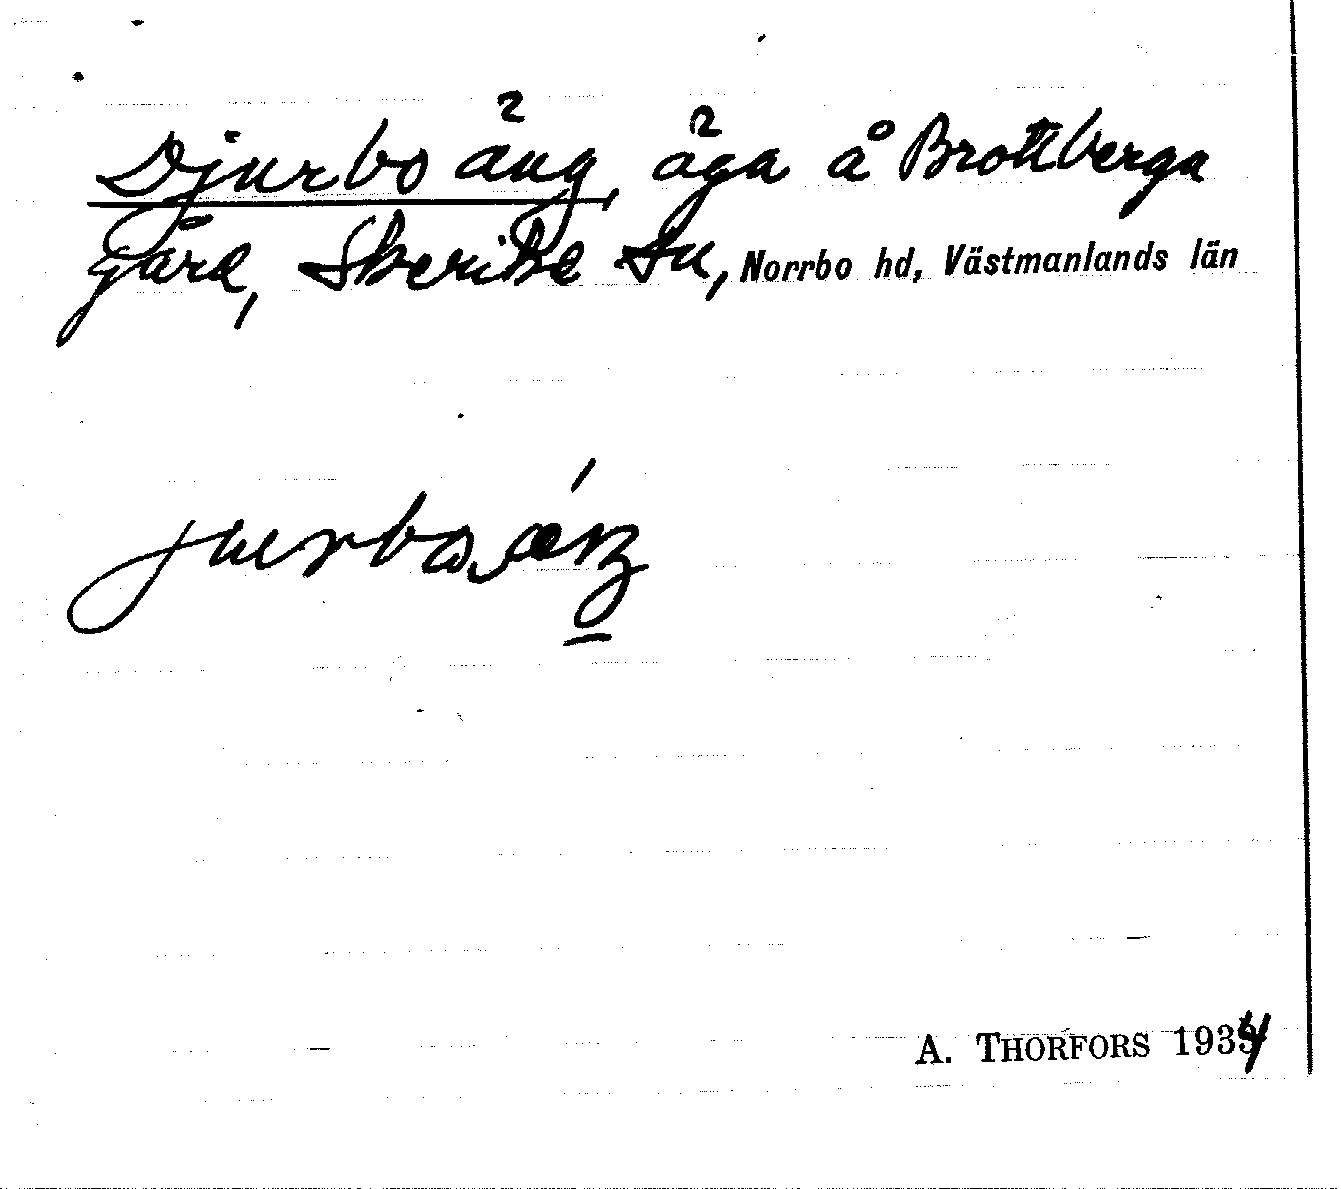 Djurbo äng, äga å Brottberga
gård, Skerike sn, Norrbo hd, Västmanlands län
A. THORFORS 1934